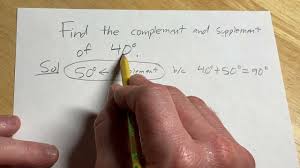 Find the complement and supplement
of 40°.
Sol 50° ← complement b/c 40° + 50° = 90°